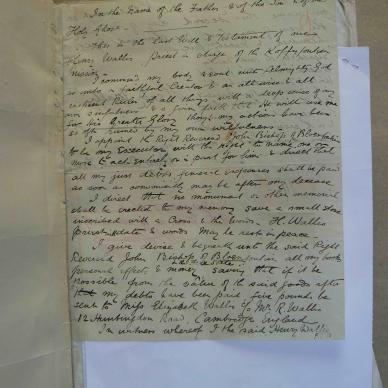 In the Name of the Father & of the Son & of the
Holy Ghost.
This is the last Will & Testament of me
Henry Wallis Priest in charge of the Koffyfontein
Mission.
I commend my body & soul unto Almighty God
as unto a faithful Creator & an all wise & all
Ruler of all things with a deep sense of my
own sinfulness & a firm faith that He will use me
for His Greater Glory though my actions have been
so oft ruined by my own wilfulness.
I appoint the Right Reverend John Bishop of Bloemfontein
to be my Executor with the right to name
to act entirely or in part for him & direct that
all my just debts funeral expenses shall be paid
as soon as conveniently may be after my decease
I direct that no monument or other memorial
shall be erected to my memory save a small stone
inscribed with a Cross & the Words H. Wallis
Priest & date & words May he rest in peace
I give devise & bequeath unto the said Right
Reverend John Bishop of Bloemfontein all my books
personal effects & money saving that if it be
possible from the value of the said goods after
my debts have been paid five pounds be
sent to Miss Elizabeth Wallis c/o Mr R. Wallis
Huntingdon Road, Cambridge England
In witness whereof I the said Henry Wallis